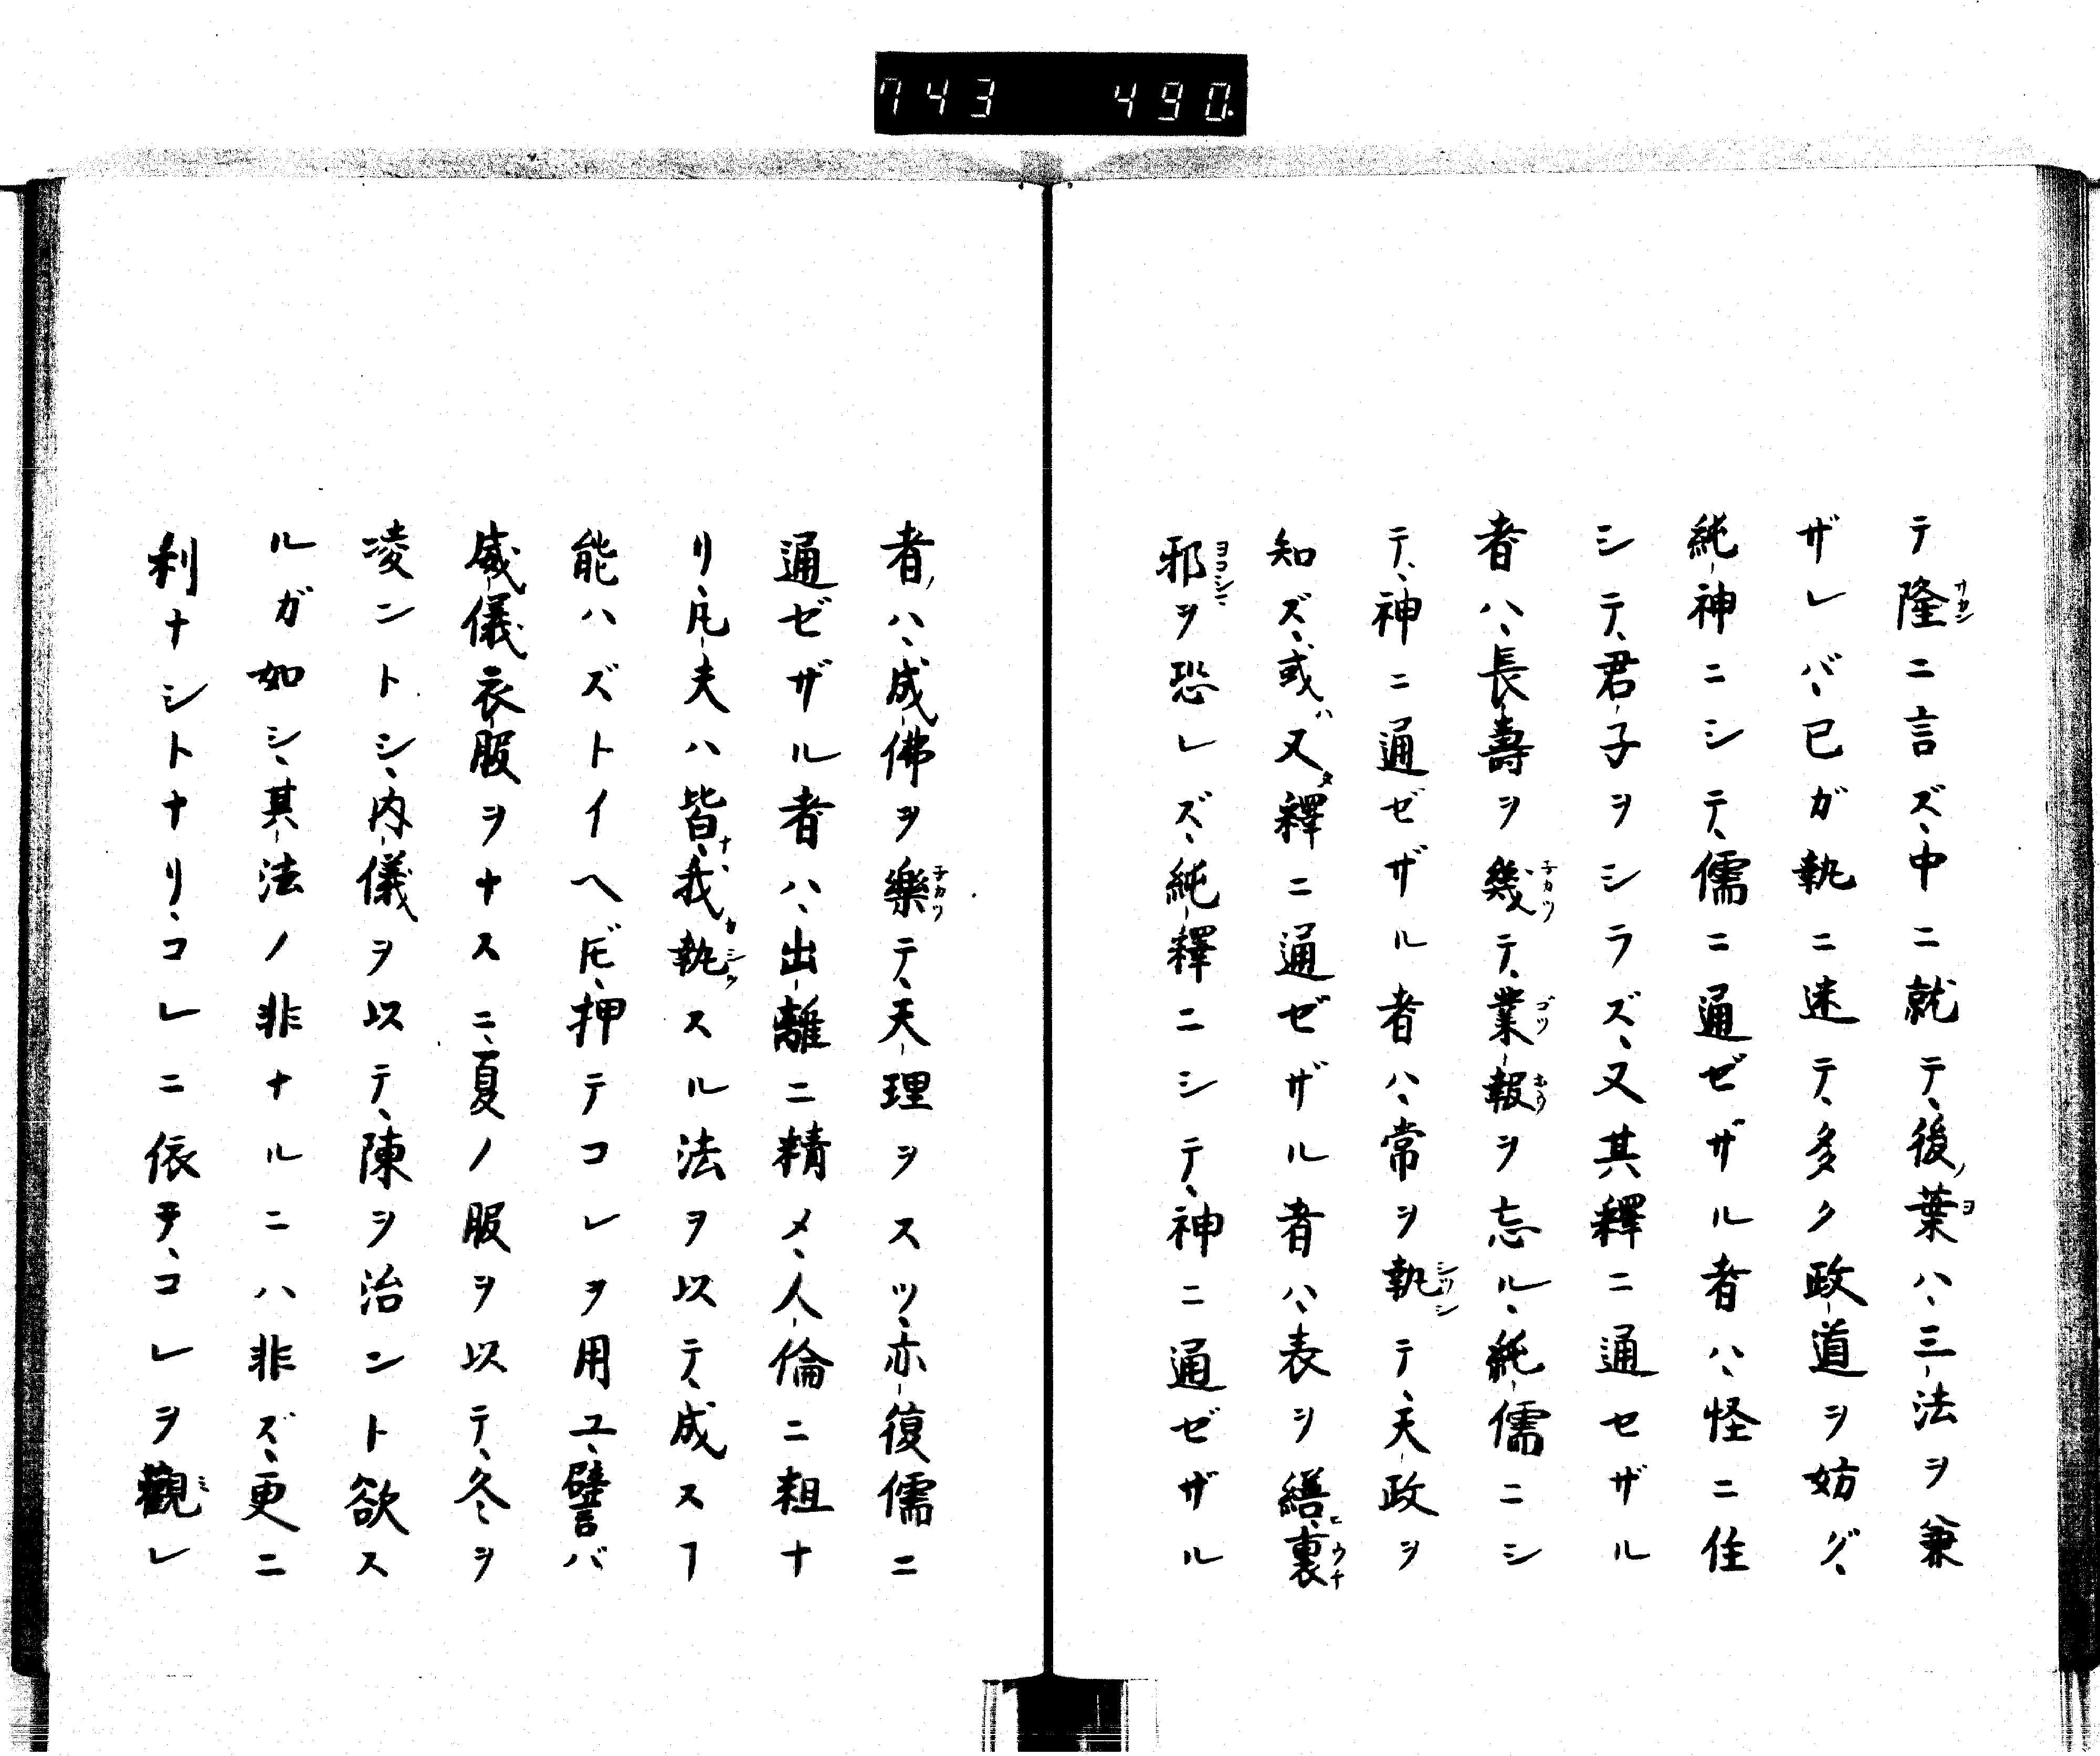 743 490
テ隆ニ言ズ、中ニ就テ、後ノ葉ハ、三-法ヲ兼
ザレバ、已ガ執ニ迷テ、多ク政-道ヲ妨グ、
純-神ニシテ、儒ニ通ゼザル者ハ、怪ニ住
シテ、君-子ヲシラズ、又其釋ニ通セザル
者ハ、長-壽ヲ幾テ、業-報ヲ忘ル、純-儒ニシ
テ、神ニ通ゼザル者ハ、常ヲ執テ、天-政ヲ
知ズ、或ハ又釋ニ通ゼザル者ハ、表ヲ繕、裏
邪ヲ恐レズ、純-釋ニシテ、神ニ通ゼザル
者ノハ、成-佛ヲ樂テ、天-理ヲスツ、亦-復儒ニ
通ゼザル者ハ、出-離ニ精メ、人-倫ニ粗ナ
リ、凡-夫ハ皆、我執スル法ヲ以テ、成スヿ
能ハズトイヘ𪜈、押テコレヲ用ユ、譬バ
威-儀衣-服ヲナスニ、夏ノ服ヲ以テ、冬ヲ
凌ントシ、内-儀ヲ以テ、陳ヲ治ント欲ス
ルガ如シ、其-法ノ非ナルニハ非ズ、更ニ
利ナシトナリ、コレニ依テ、コレヲ觀レ